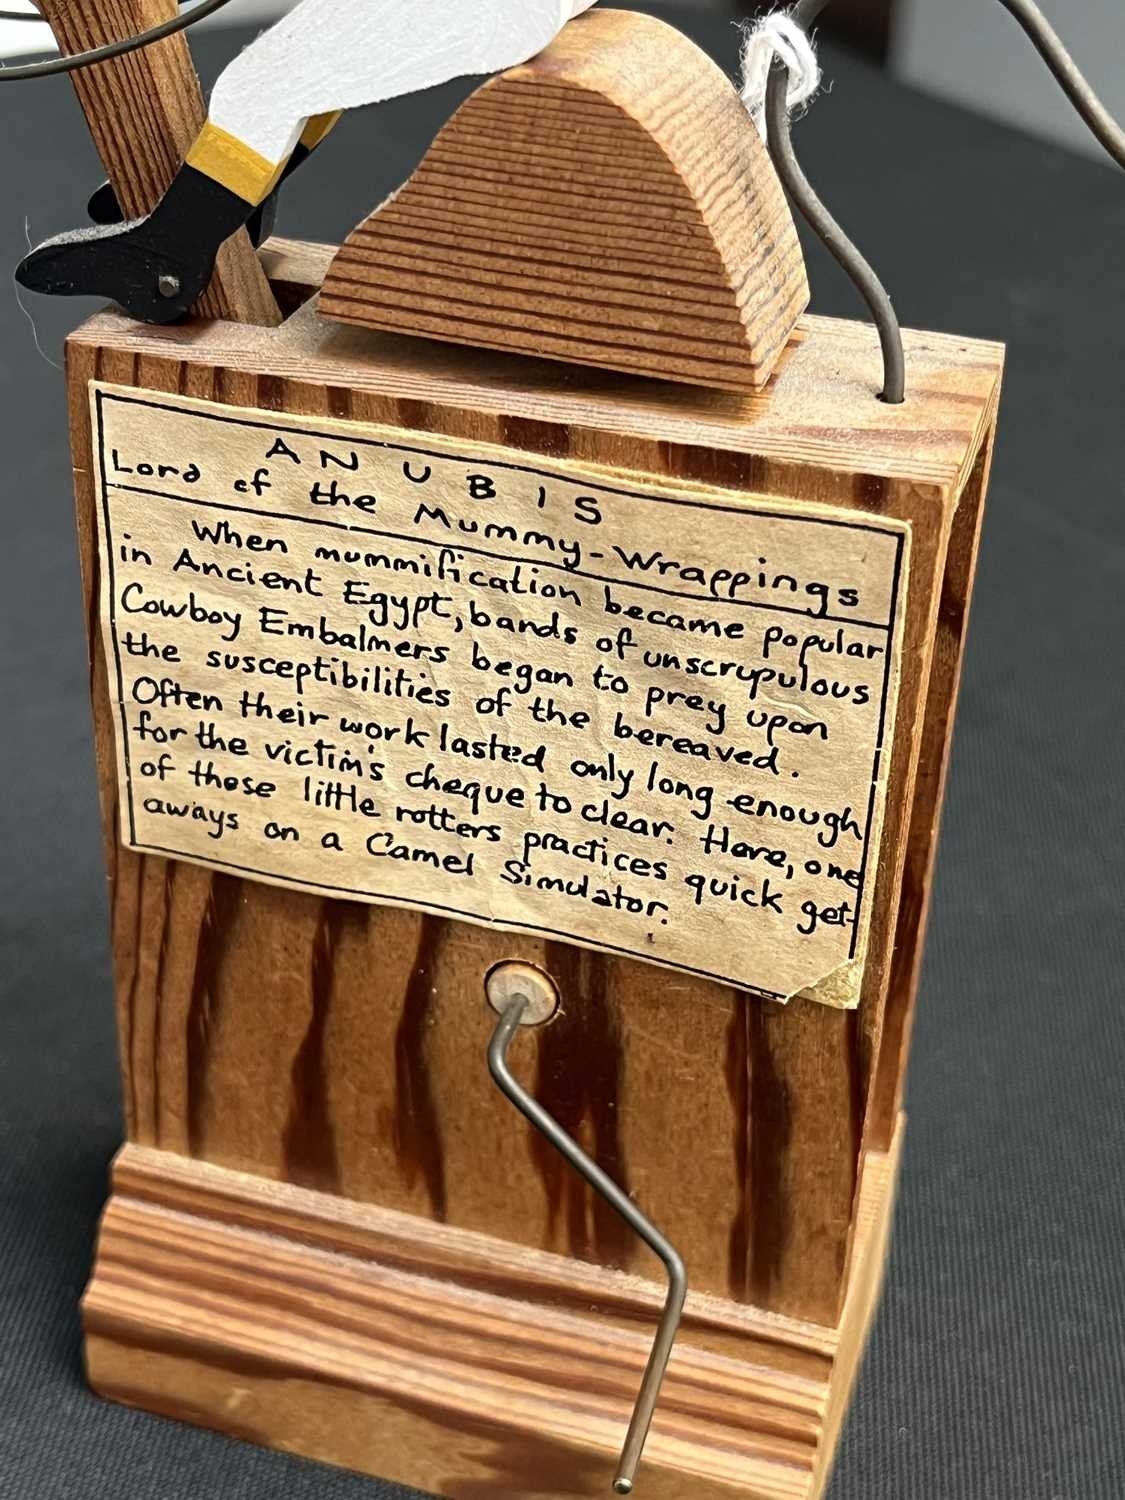 ANUBIS
Lord of the Mummy-Wrappings
When mummification became popular
in Ancient Egypt, bands of unscrupulous
Cowboy Embalmers began to prey upon
the susceptibilities of the bereaved.
Often their work lasted only long enough
for the victim's cheque to clear. Here, one
of these little rotters practices quick get-
aways on a Camel Simulator.